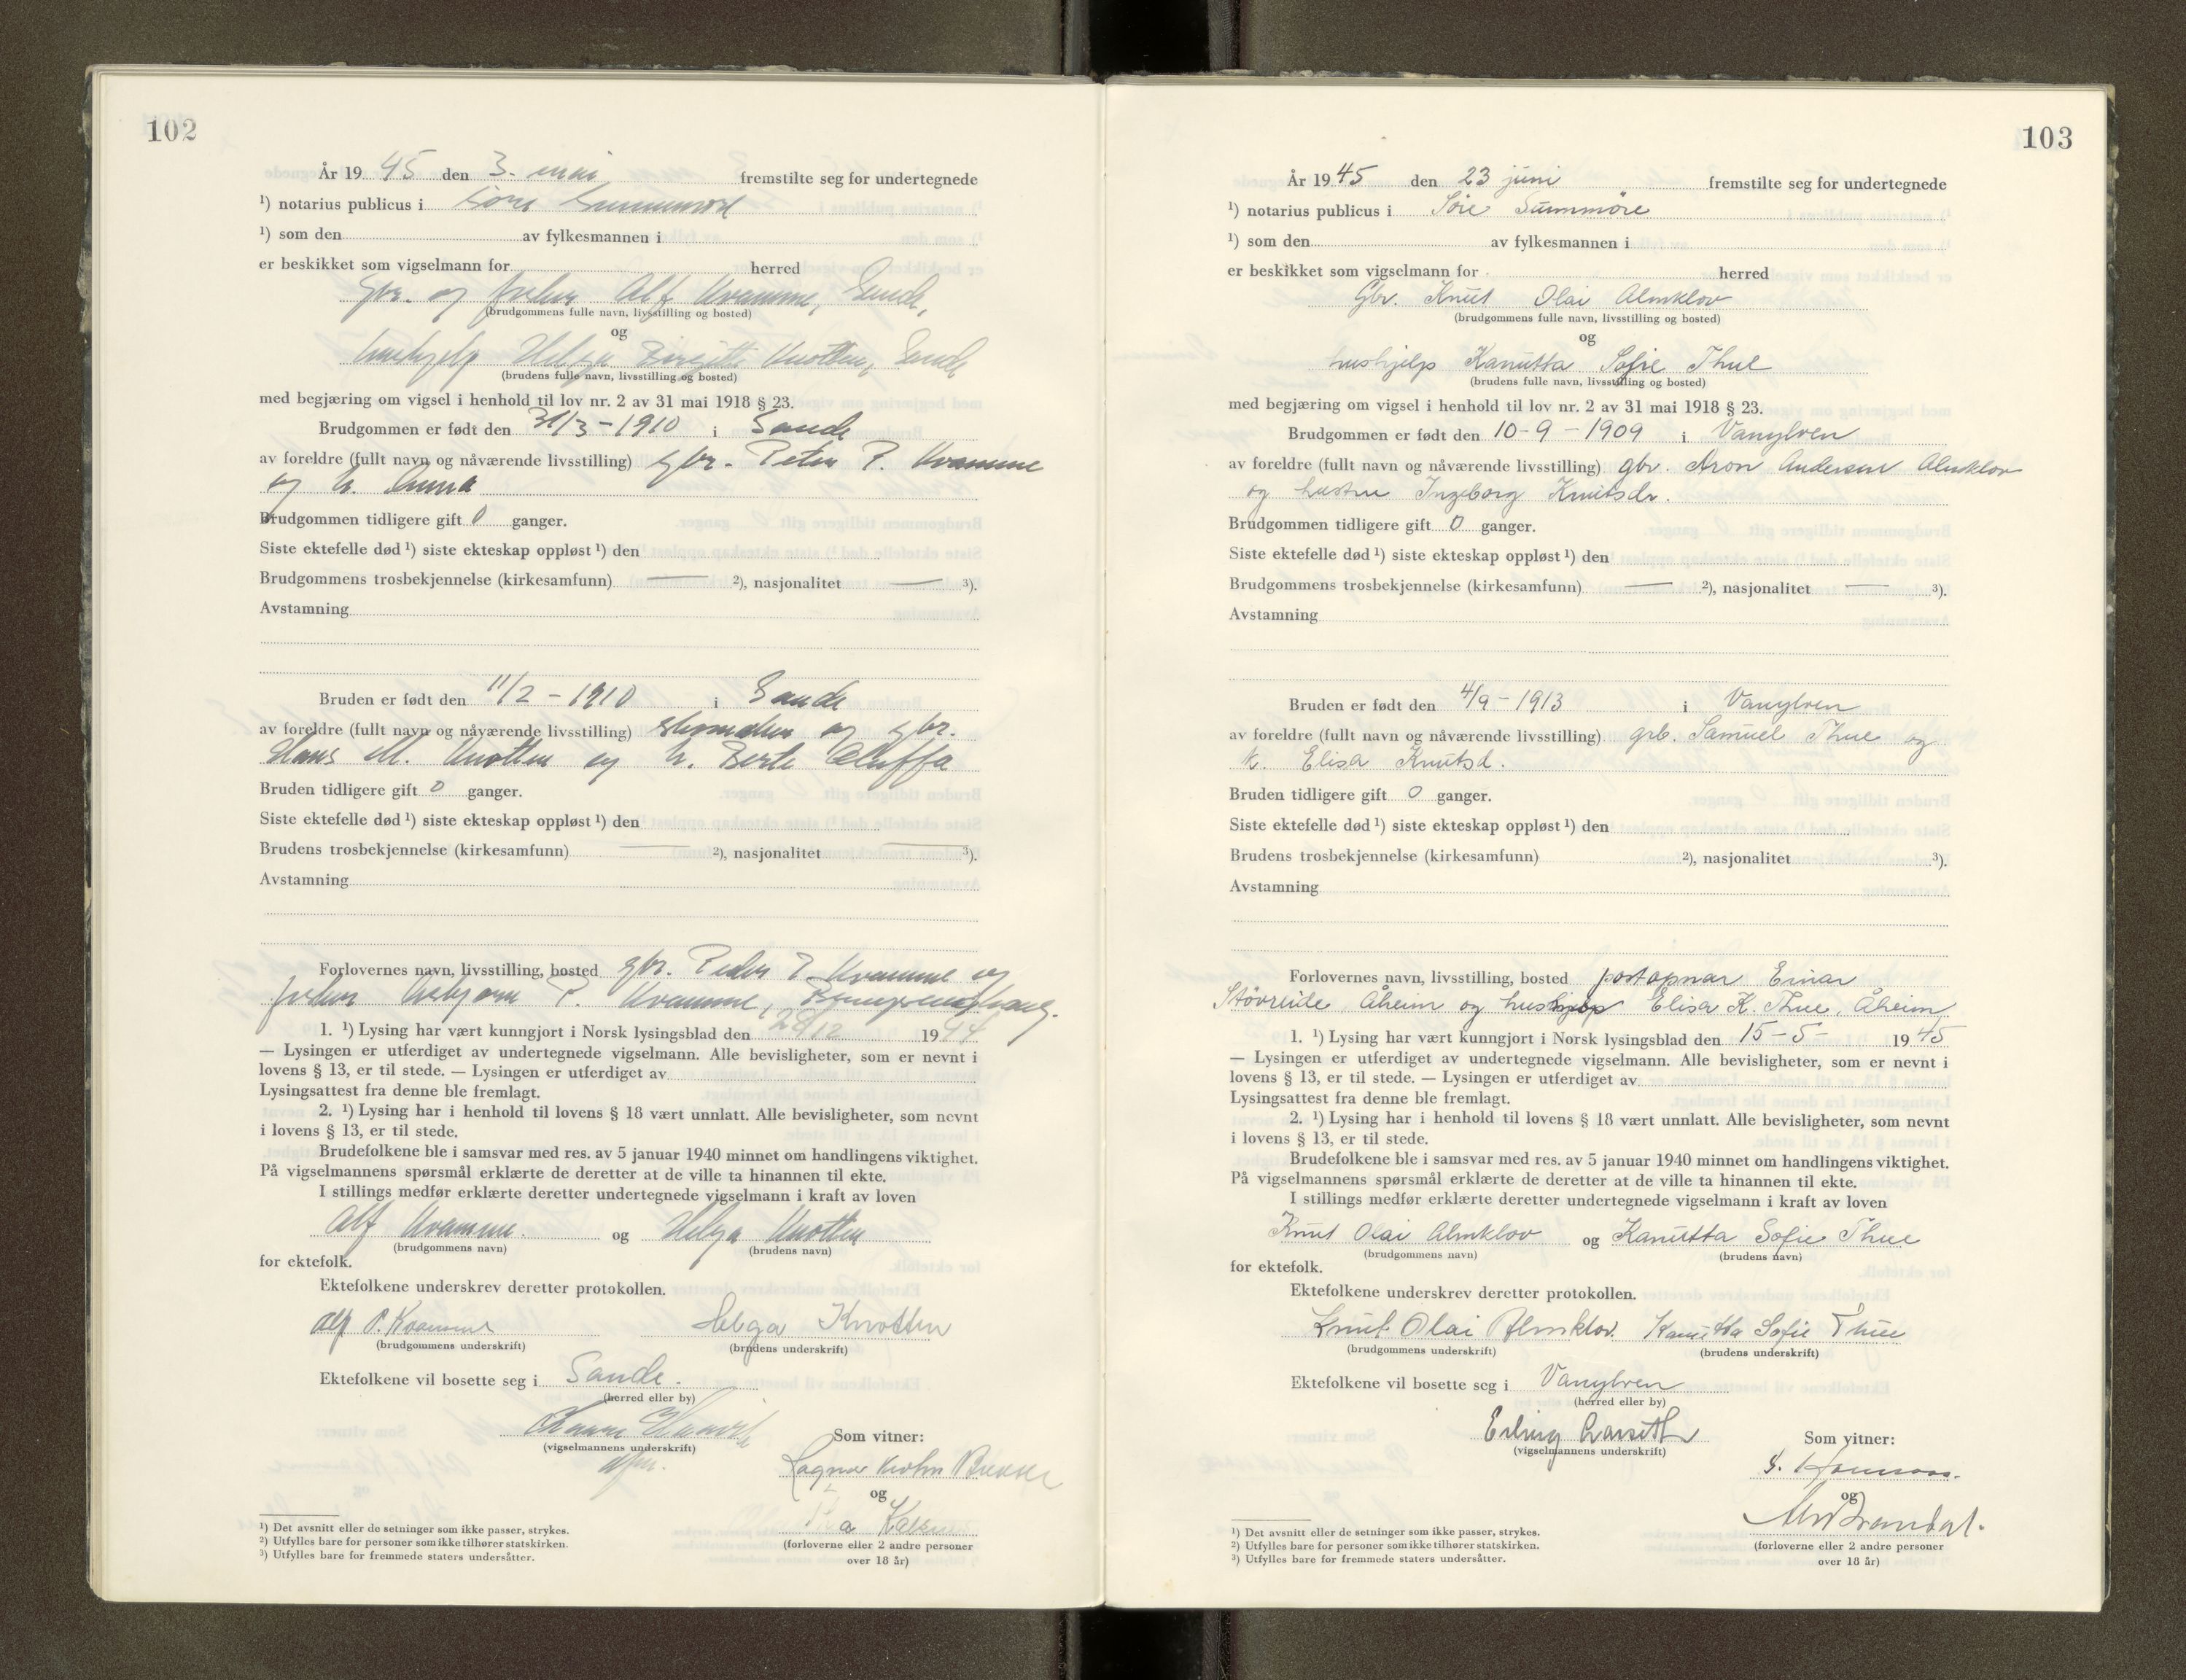 102
År 19 45 den 3. mai fremstilte seg for undertegnede
¹) notarius publicus i Søre Sunnmøre
¹) som den av fylkesmannen i
er beskikket som vigselmann for herred
Gbr. og fisker Alf Kvamme, Sande,
(brudgommens fulle navn, livsstilling og bosted)
og
hushjelp Helga Birgitte Knotten, Sande
(brudens fulle navn, livsstilling og bosted)
med begjæring om vigsel i henhold til lov nr. 2 av 31 mai 1918 § 23.
Brudgommen er født den 31/3 - 1910 i Sande
av foreldre (fullt navn og nåværende livsstilling) gbr. Peter P. Kvamme
og h. Anna
Brudgommen tidligere gift 0 ganger.
Siste ektefelle død ¹) siste ekteskap oppløst ¹) den
Brudgommens trosbekjennelse (kirkesamfunn) — ²), nasjonalitet — ³).
Avstamning
Bruden er født den 11/2 - 1910 i Sande
av foreldre (fullt navn og nåværende livsstilling) skomaker og gbr.
Hans M. Knotten og h. Berte Oluffa
Bruden tidligere gift 0 ganger.
Siste ektefelle død ¹) siste ekteskap oppløst ¹) den
Brudens trosbekjennelse (kirkesamfunn) — ²), nasjonalitet — ³).
Avstamning
Forlovernes navn, livsstilling, bosted gbr. Peder P. Kvamme og
fisker Asbjørn P. Kvamme,
1. ¹) Lysing har vært kunngjort i Norsk lysingsblad den 28/12 19 44
— Lysingen er utferdiget av undertegnede vigselmann. Alle bevisligheter, som er nevnt i
lovens § 13, er til stede. — Lysingen er utferdiget av
Lysingsattest fra denne ble fremlagt.
2. ¹) Lysing har i henhold til lovens § 18 vært unnlatt. Alle bevisligheter, som nevnt
i lovens § 13, er til stede.
Brudefolkene ble i samsvar med res. av 5 januar 1940 minnet om handlingens viktighet.
På vigselmannens spørsmål erklærte de deretter at de ville ta hinannen til ekte.
I stillings medfør erklærte deretter undertegnede vigselmann i kraft av loven
Alf Kvamme. og Helga Knotten
(brudgommens navn) (brudens navn)
for ektefolk.
Ektefolkene underskrev deretter protokollen.
Alf P. Kvamme Helga Knotten
(brudgommens underskrift) (brudens underskrift)
Ektefolkene vil bosette seg i Sande.
(herred eller by)
(vigselmannens underskrift)
Som vitner:
Ragnar
og
(forloverne eller 2 andre personer
over 18 år)
¹) Det avsnitt eller de setninger som ikke passer, strykes.
²) Utfylles bare for personer som ikke tilhører statskirken.
³) Utfylles bare for fremmede staters undersåtter.
103
År 19 45 den 23 juni fremstilte seg for undertegnede
¹) notarius publicus i Søre Sunnmøre
¹) som den av fylkesmannen i
er beskikket som vigselmann for herred
Gbr. Knut Olai Almklov
(brudgommens fulle navn, livsstilling og bosted)
og
hushjelp Kanutta Sofie Thue
(brudens fulle navn, livsstilling og bosted)
med begjæring om vigsel i henhold til lov nr. 2 av 31 mai 1918 § 23.
Brudgommen er født den 10-9-1909 i Vanylven
av foreldre (fullt navn og nåværende livsstilling) gbr. Aron Andersen Almklov
og hustru Ingeborg Knutsdr.
Brudgommen tidligere gift 0 ganger.
Siste ektefelle død ¹) siste ekteskap oppløst ¹) den
Brudgommens trosbekjennelse (kirkesamfunn) — ²), nasjonalitet — ³).
Avstamning
Bruden er født den 4/9 - 1913 i Vanylven
av foreldre (fullt navn og nåværende livsstilling) grb. Samuel Thue og
h. Elisa Knutsd.
Bruden tidligere gift 0 ganger.
Siste ektefelle død ¹) siste ekteskap oppløst ¹) den
Brudens trosbekjennelse (kirkesamfunn) ²), nasjonalitet ³).
Avstamning
Forlovernes navn, livsstilling, bosted postopnar Einar
Støvreide, Åheim og hushjelp Elisa K. Thue, Åheim
1. ¹) Lysing har vært kunngjort i Norsk lysingsblad den 15-5- 19 45
— Lysingen er utferdiget av undertegnede vigselmann. Alle bevisligheter, som er nevnt i
lovens § 13, er til stede. — Lysingen er utferdiget av
Lysingsattest fra denne ble fremlagt.
2. ¹) Lysing har i henhold til lovens § 18 vært unnlatt. Alle bevisligheter, som nevnt
i lovens § 13, er til stede.
Brudefolkene ble i samsvar med res. av 5 januar 1940 minnet om handlingens viktighet.
På vigselmannens spørsmål erklærte de deretter at de ville ta hinannen til ekte.
I stillings medfør erklærte deretter undertegnede vigselmann i kraft av loven
Knut Olai Almklov og Kanutta Sofie Thue
(brudgommens navn) (brudens navn)
for ektefolk.
Ektefolkene underskrev deretter protokollen.
Knut Olai Almklov Kanutta Sofie Thue
(brudgommens underskrift) (brudens underskrift)
Ektefolkene vil bosette seg i Vanylven
(herred eller by)
Erling
(vigselmannens underskrift)
Som vitner:
og
Brandal.
(forloverne eller 2 andre personer
over 18 år)
¹) Det avsnitt eller de setninger som ikke passer, strykes.
²) Utfylles bare for personer som ikke tilhører statskirken.
³) Utfylles bare for fremmede staters undersåtter.